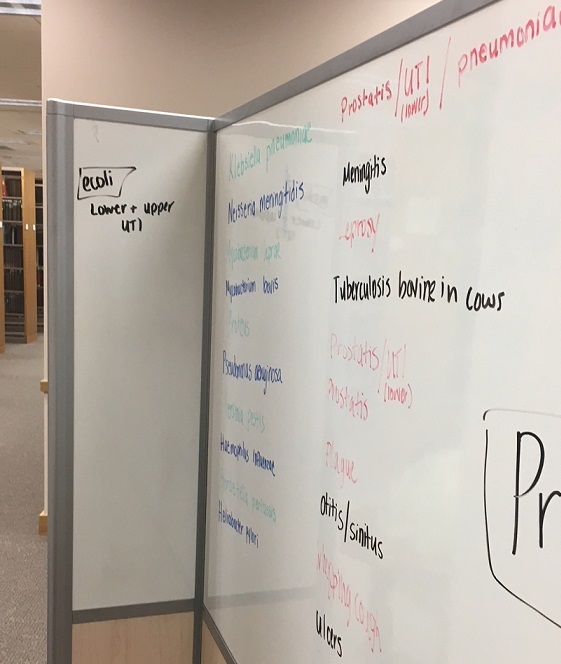 ecoli
Lower + upper
UTI
Klebsiella pneumoniae
Prostatis/UTI / pneumonia
(lower)
Neisseria meningitidis
Meningitis
Leprosy
Mycobacterium bovis
Tuberculosis bovine in cows
Proteus
Prostatis/UTI
(lower)
Pseudomonas aeruginosa
Prostatis
pestis
Plague
Haemophilus influenzae
Otitis/sinitus
whooping cough
Helicobacter pylori
ulcers
Pr